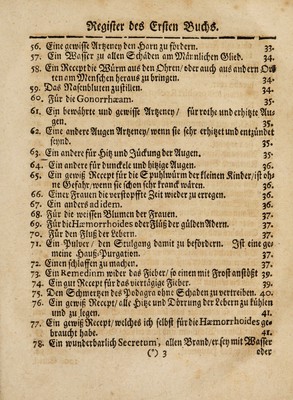 Register des Ersten Buchs.
56. Eine gewisse Artzeney den Harn zu fördern. 33.
57. Ein Wasser zu allen Schäden am Männlichen Glied. 34.
58. Ein Recept die Würm aus den Ohren/ oder auch aus andern Or-
ten am Menschen heraus zu bringen. 34.
59. Das Nasenbluten zustillen. 34.
60. Für die Gonorrhæam. 35.
61. Ein bewährte und gewisse Artzeney/ für rothe und erhitzte Au-
gen. 35.
62. Eine andere Augen Artzeney/ wenn sie sehr erhitzet und entzündet
seynd. 35.
63. Ein andere für Hitz und Jückung der Augen. 35.
64. Ein andere für dunckele und hitzige Augen. 36.
65. Ein gewiß Recept für die Spuhlwürm der kleinen Kinder/ ist oh-
ne Gefahr/ wenn sie schon sehr kranck wären. 36.
66. Einer Frauen die verstopffte Zeit wieder zu erregen. 36.
67. Ein anders ad idem. 36.
68. Für die weissen Blumen der Frauen. 37.
69. Für die Hæmorrhoides oder Flüß der gülden Adern. 37.
70. Für den Fluß der Lebern. 37.
71. Ein Pulver/ den Stulgang damit zu befördern. Ist eine ge-
meine Hauß-Purgation. 37.
72. Einen schlaffen zu machen. 37.
73. Ein Remedium wider das Fieber/ so einen mit Frost anstößt 39.
74. Ein gut Recept für das viertägige Fieber. 39.
75. Den Schmertzen des Podagra ohne Schaden zu vertreiben. 40.
76. Ein gewiß Recept/ alle Hitz und Dörrung der Lebern zu kühlen
und zu legen. 41.
77. Ein gewiß Recept/ welches ich selbst für die Hæmorrhoides ge-
braucht habe. 41.
78. Ein wunderbarlich Secretum, allen Brand/ er sey mit Wasser
(*) 3 oder